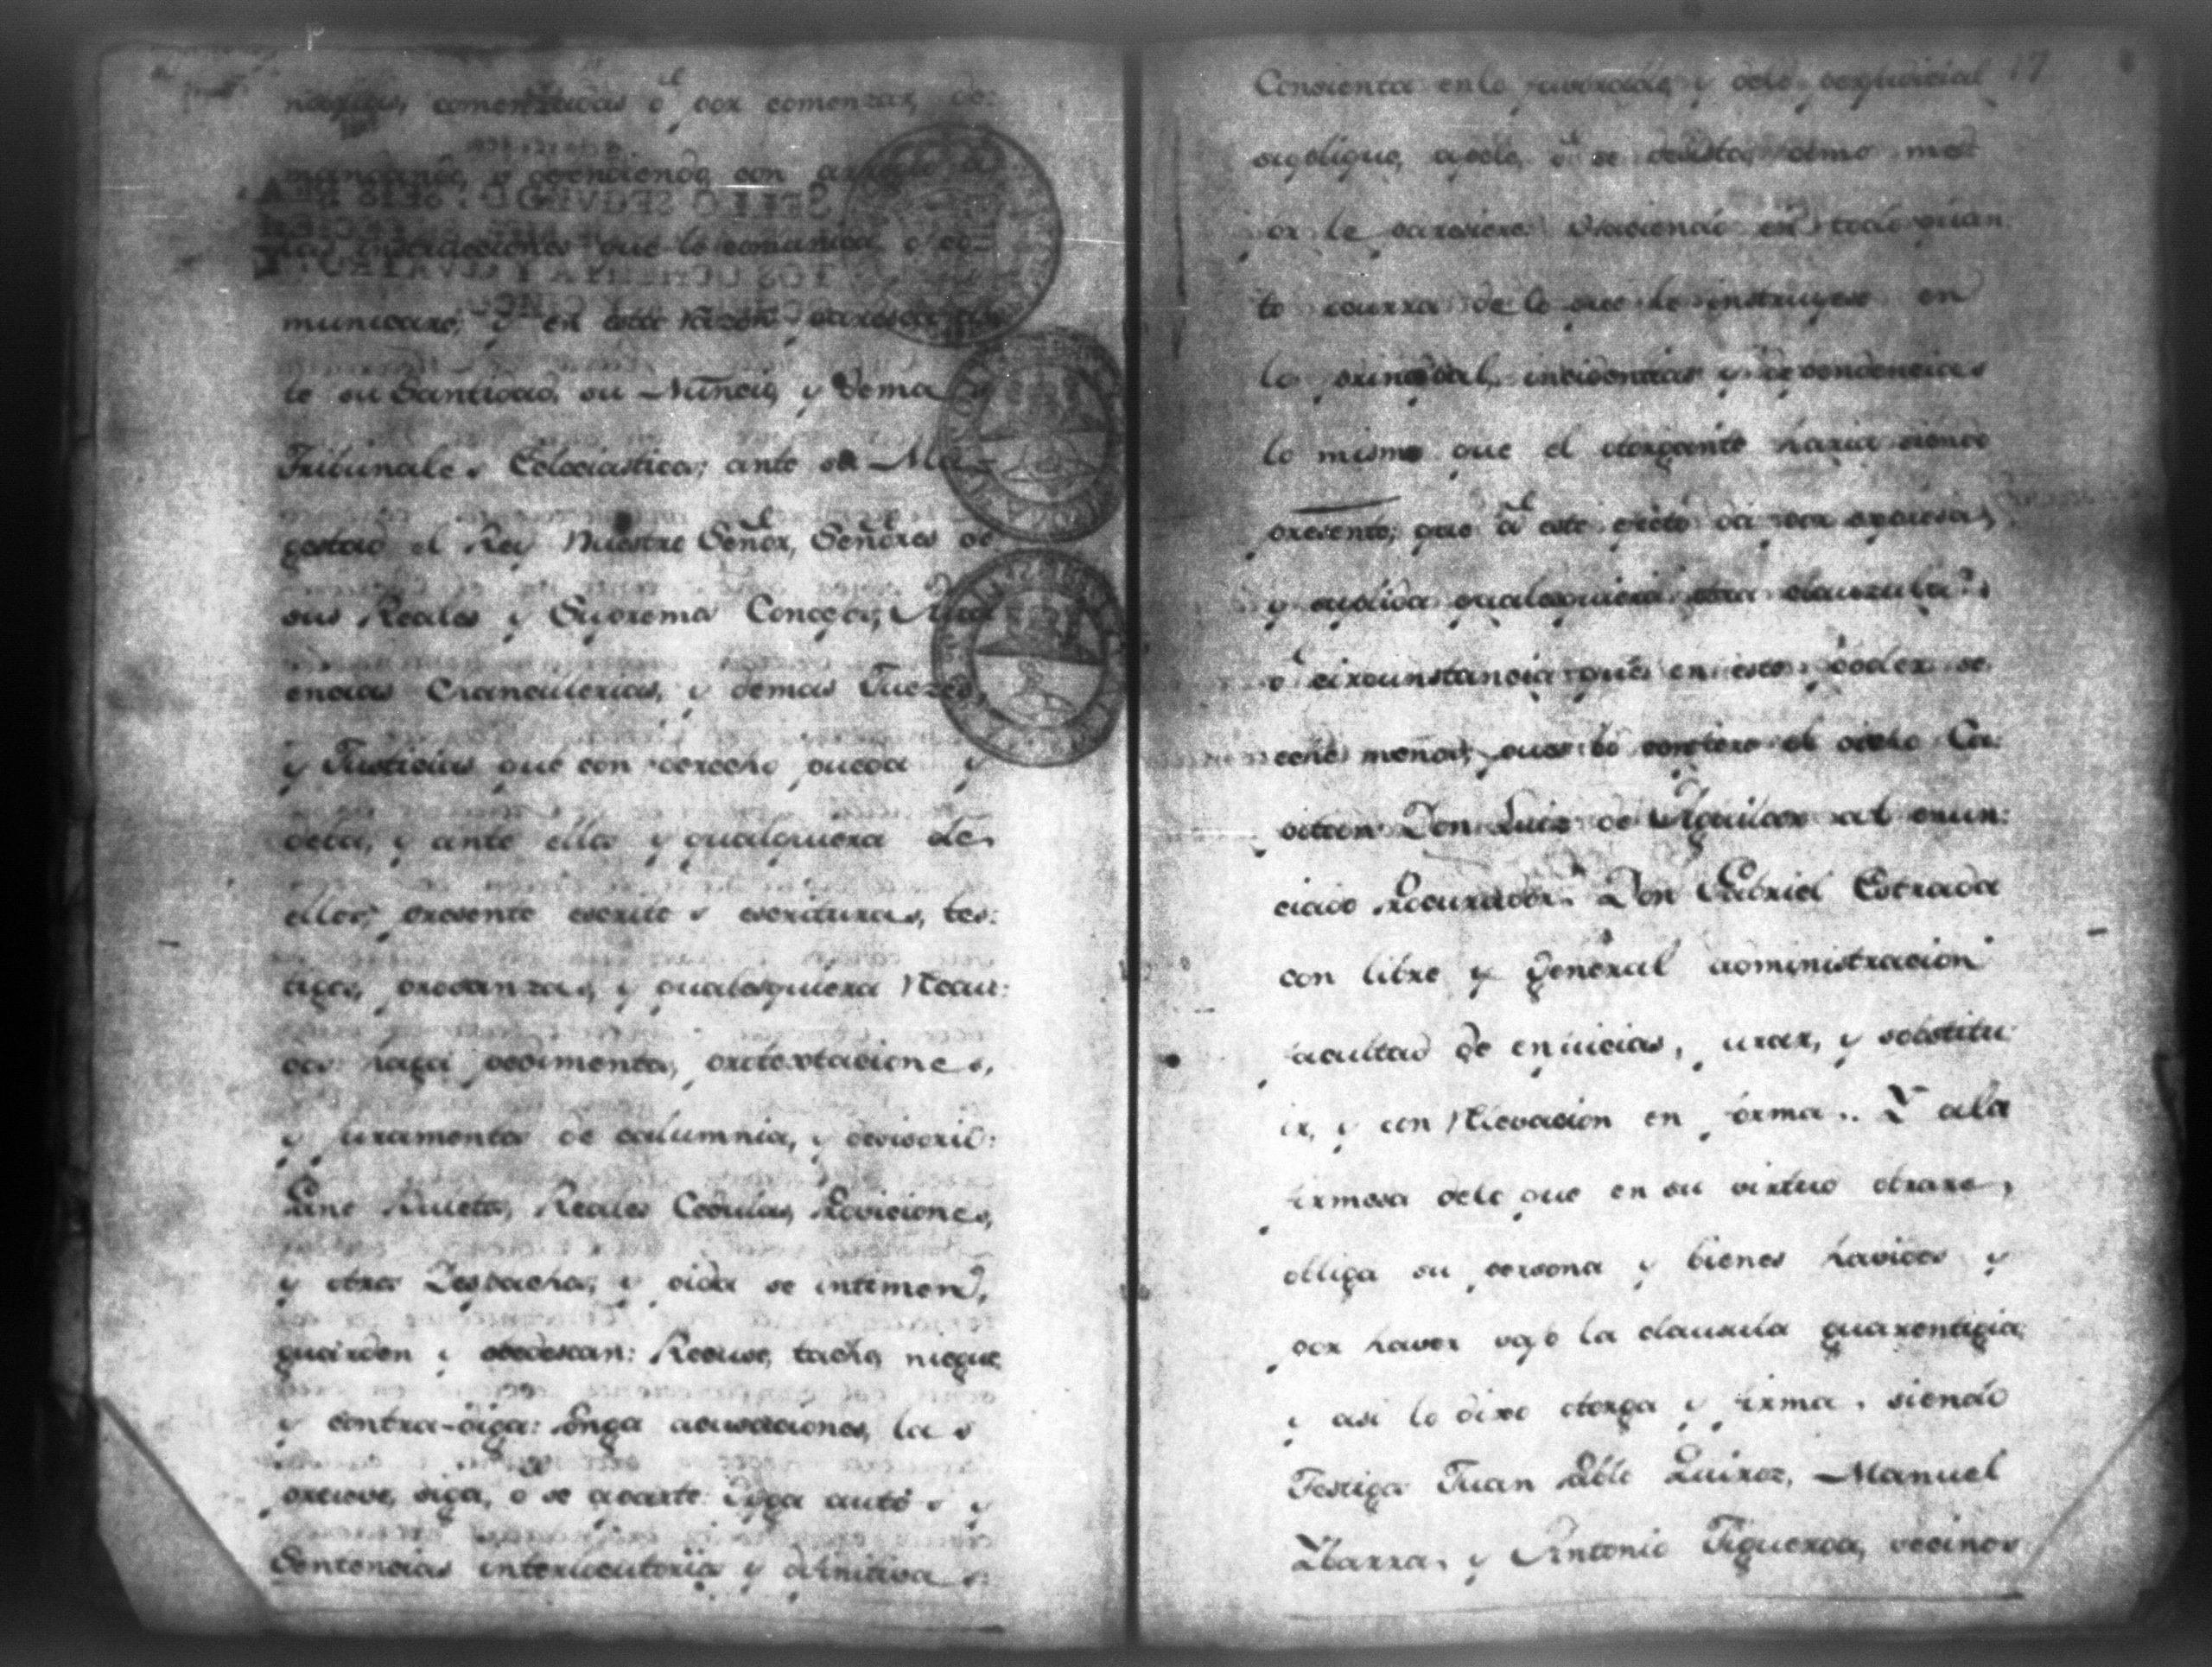 comenzadas ó por comenzar, de:
mandando, o defendiendo, con arreglo á
las instrucciones que le comunica, o co=
municare, y en esta razon paresca an
te su Santidad, su Nuncio, y dema s
Tribunale s Eclesiasticos; ante su Ma=
gestad el Rey Nuestro Señor, Señores de
sus Reales y Supremos Concejos, Audi
encias Chancillerias, y demas Juezes,
y Justicias que con derecho pueda y
deba, y ante ellos y qualquiera de
ellos, presente escrito s escrituras, tes:
tigos, provanzas, y qualesquiera Recau:
dos: haga pedimentos, protextacione s,
y juramentos de calumnia, y decisorio:
Gane Reales Cedulas, Provicione s,
y otros Despachos; y pida se intimen,
guarden y obedescan: Recuse, tache, niegue,
y contra-diga: Ponga acusaciones, la s
prueve, siga, o se aparte: Oyga auto s y
Sentencias interlocutorias y definitiva s:
Consienta en lo favorable, y delo perjudicial 17
suplique, apele, ó se desista, como mej
or le paresiere: Haciendo en todo quan
to ocurra de lo que le instruyese en
lo prinsipal, incidencias y dependencias
lo mismo que el otorgante haria siendo
presente; que á este efecto da por expresa,
y suplida qualesquiera otra clausula
ó circunstancia que en este poder se
eche menos, pues lo confiere el dicho Ca:
pitan Don Luis de Aguilar al enun:
ciado Procurador Don Gabriel Estrada
con libre y general administracion
facultad de enjuiciar, jurar, y sobstitu
ir, y con Relevacion en forma.. Y ala
firmesa delo que en su virtud obrare,
obliga su persona y bienes havidos y
por haver vajo la clausula guarentigia,
y asi lo dixo otorga y firma, siendo
Testigos Juan Pablo Quiroz, Manuel
Ybarra, y Antonio Figueroa, vecinos